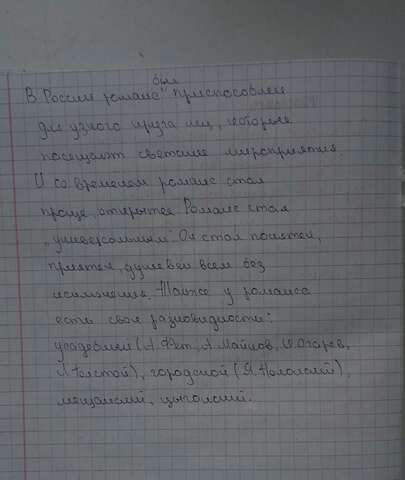 В России романс был приспособлен
для узкого круга лиц, которые
посещают светские мероприятия.
И со временем романс стал
проще, открытее. Романс стал
„универсальным". Он стал понятен,
приятен, душевен всем без
исключения. Также у романса
есть свои разновидности:
усадебный (А. Фет, А. Майков, Огарев,
Толстой), городской (Я. Полонский),
мещанский, цыганский.